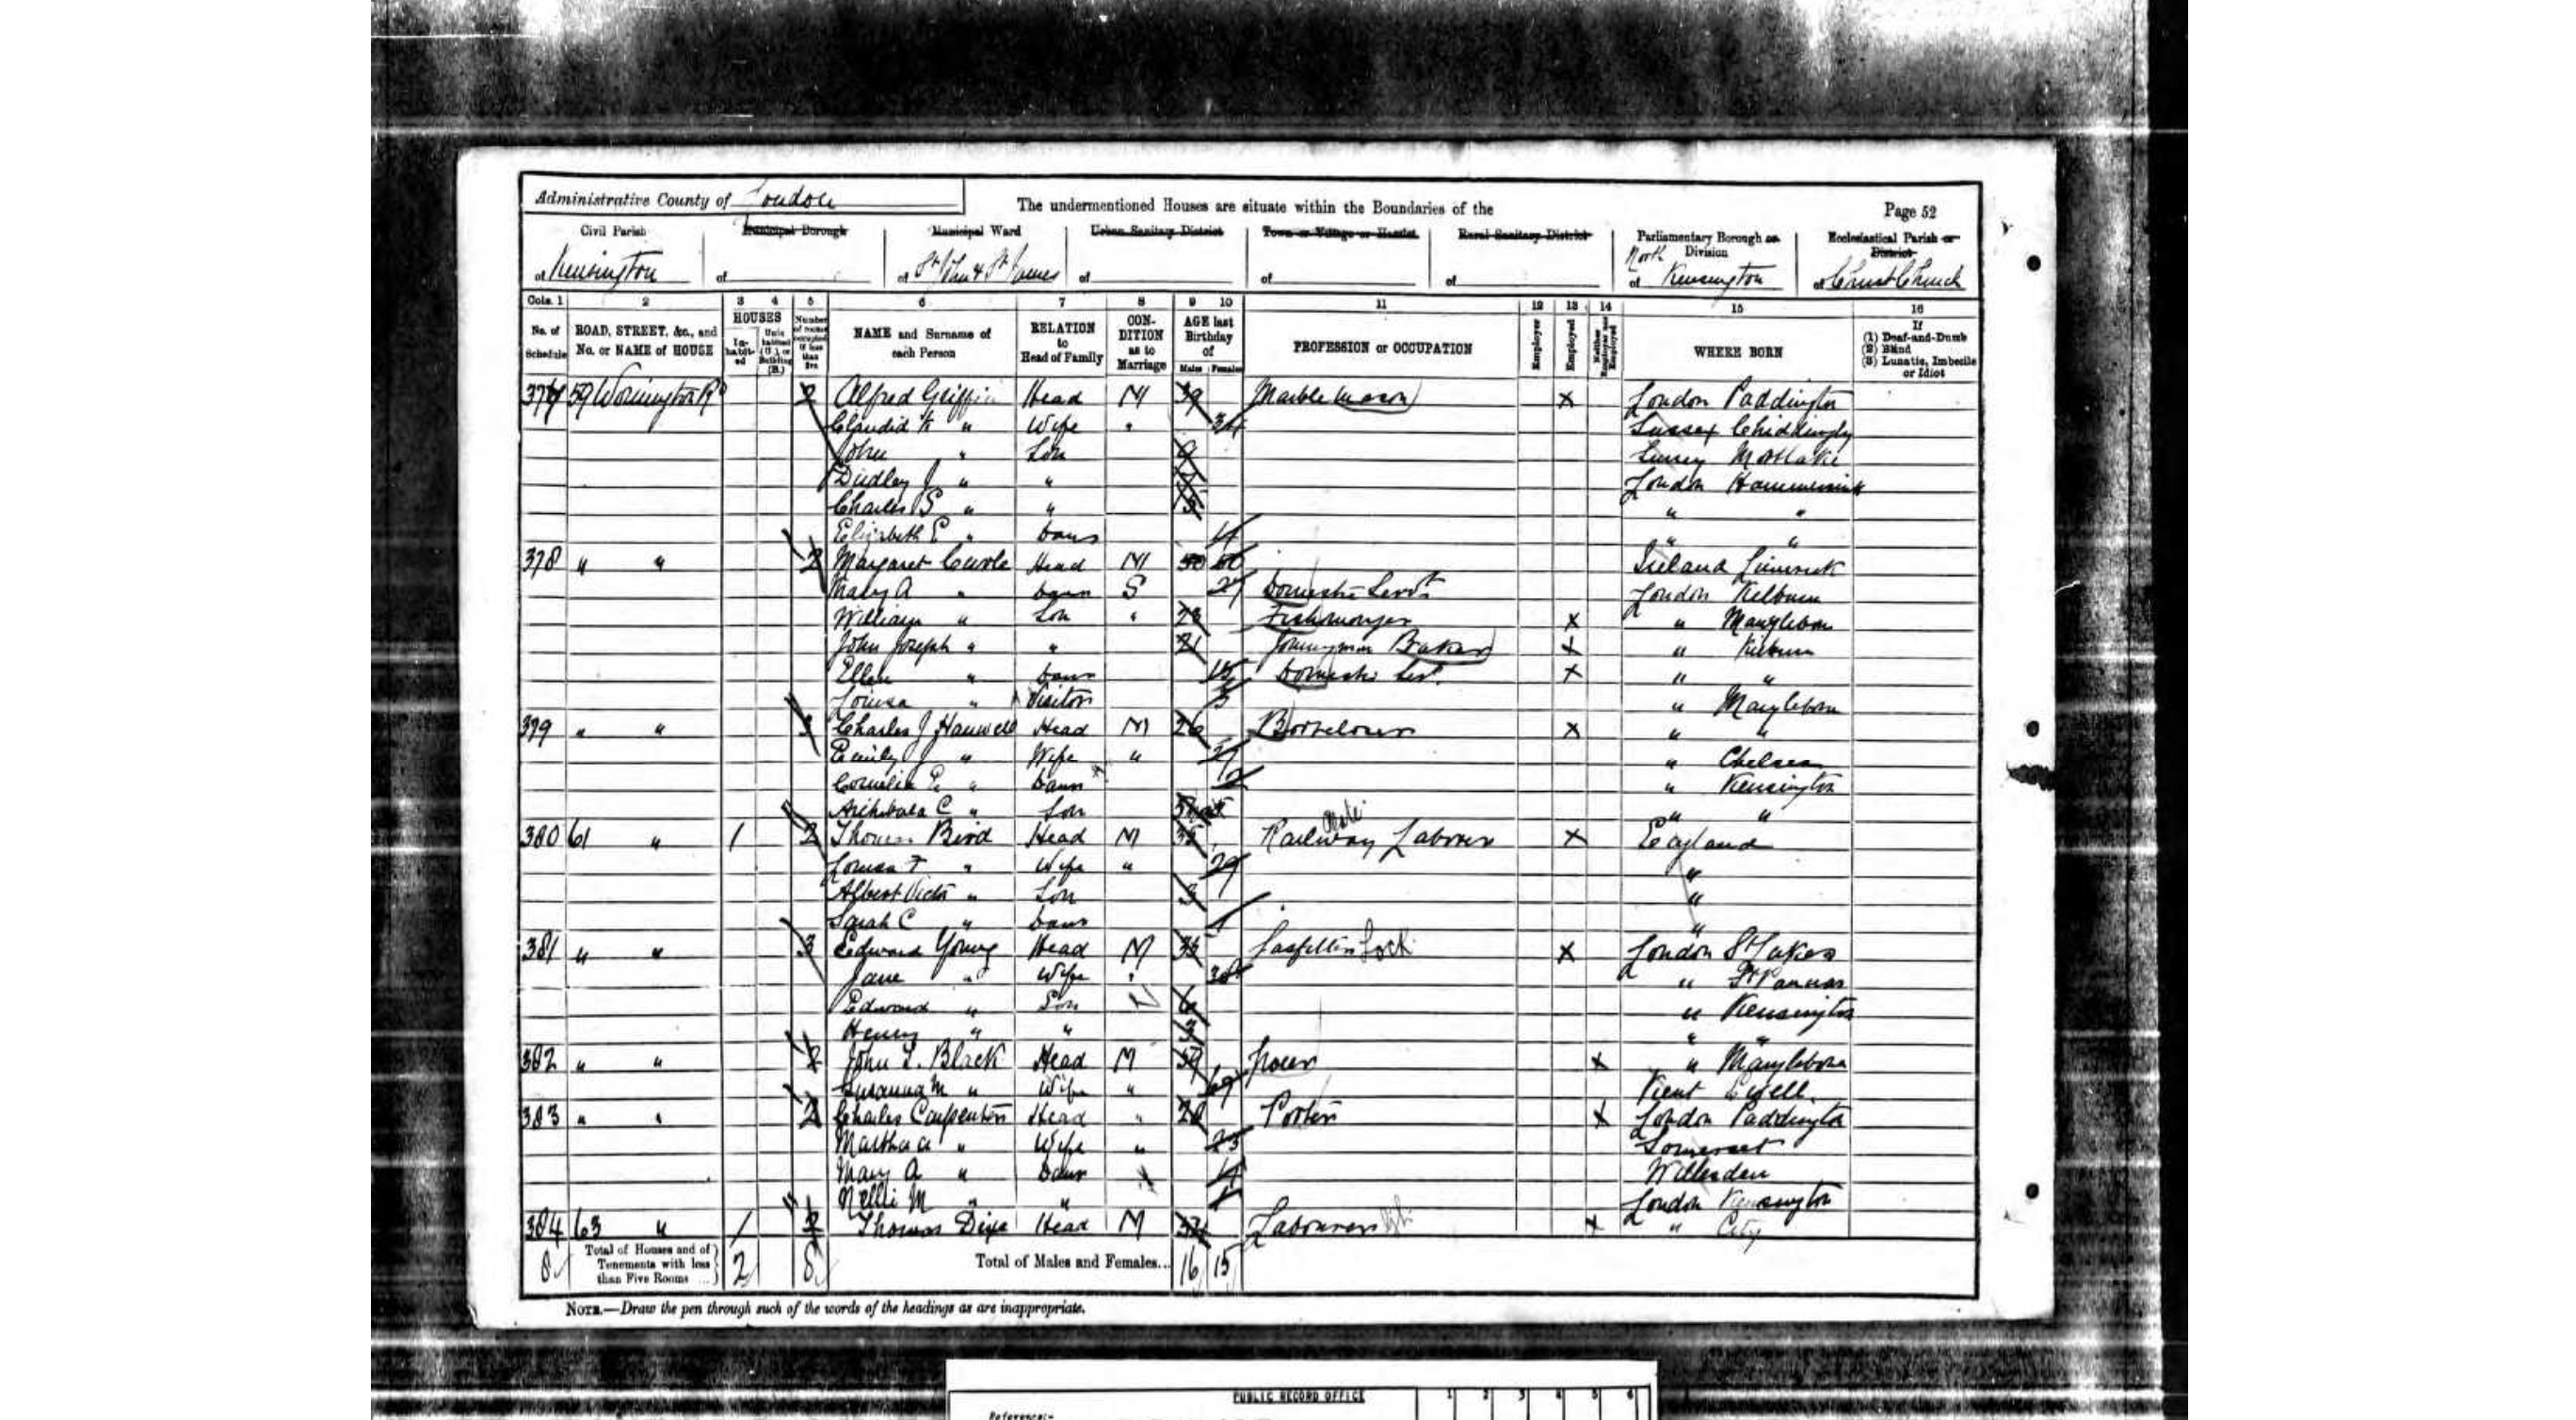 Administrative County of London
The undermentioned Houses are situate within the Boundaries of the
Page 52
Civil Parish Municipal Borough Municipal Ward Urban Sanitary District Town or Village or Hamlet Rural Sanitary District Parliamentary Borough or Division Ecclesiastical Parish or District
of Kensington of of St James of of of North of Kensington of Christ Church
Cols. 1 2 3 4 5 6 7 8 9 10 11 12 13 14 15 16
No. of Schedule ROAD, STREET, &c., and No. or NAME of HOUSE HOUSES In-habit-ed Number of rooms occupied if less than five NAME and Surname of each Person RELATION to Head of Family CON-DITION as to Marriage AGE last Birthday of Males Females PROFESSION or OCCUPATION Employer Employed Neither Employer nor Employed WHERE BORN If (1) Deaf-and-Dumb (2) Blind (3) Lunatic, Imbecile or Idiot
377 59 Wornington Rd 2 Alfred Griffin Head M 39 Marble Mason X London Paddington
" Wife " 34 Sussex Chiddingly
John " Son 9 Surrey Mortlake
Dudley J " " London
Charles S " " " "
Elizabeth E " Daur " "
378 " " 2 Margaret Head M 50 50 Ireland Limerick
Mary A " Daur S 27 Domestic Servt London Kilburn
William " Son " 23 Fishmonger X " Marylebone
John Joseph " " 21 Journeyman Baker X " Kilburn
Ellen " Daur Domestic Servt X " "
Louisa " Visitor " Marylebone
379 " " 3 Charles J Head M 26 X " "
Emily J " Wife " 27 " Chelsea
Cornelia E " Daur 2 " Kensington
Archibald C " Son " "
380 61 " 1 2 Thomas Bird Head M 35 Railway Labourer X England
Louisa F " Wife " 29 "
Albert Victor " Son 3 "
Sarah C " Daur 1 "
381 " " 3 Edward Young Head M Gasfitter Lock X London St Lukes
Jane " Wife " " St Pancras
Edward " Son 6 " Kensington
Henry " " 3 " "
382 " " John Black Head M X " Marylebone
Susanna M " Wife " 69 Kent
383 " " 2 Charles Carpenter Head " 28 Porter X London Paddington
Martha A " Wife " 23 Somerset
Mary A " Daur 4 Willesden
Nellie M " " London Kensington
384 63 " 1 Thomas Head M Labourer X " City
8 Total of Houses and of Tenements with less than Five Rooms ... 2 8 Total of Males and Females... 16 15
NOTE.—Draw the pen through such of the words of the headings as are inappropriate.
PUBLIC RECORD OFFICE 1 2 3 4 5 6
Reference:-